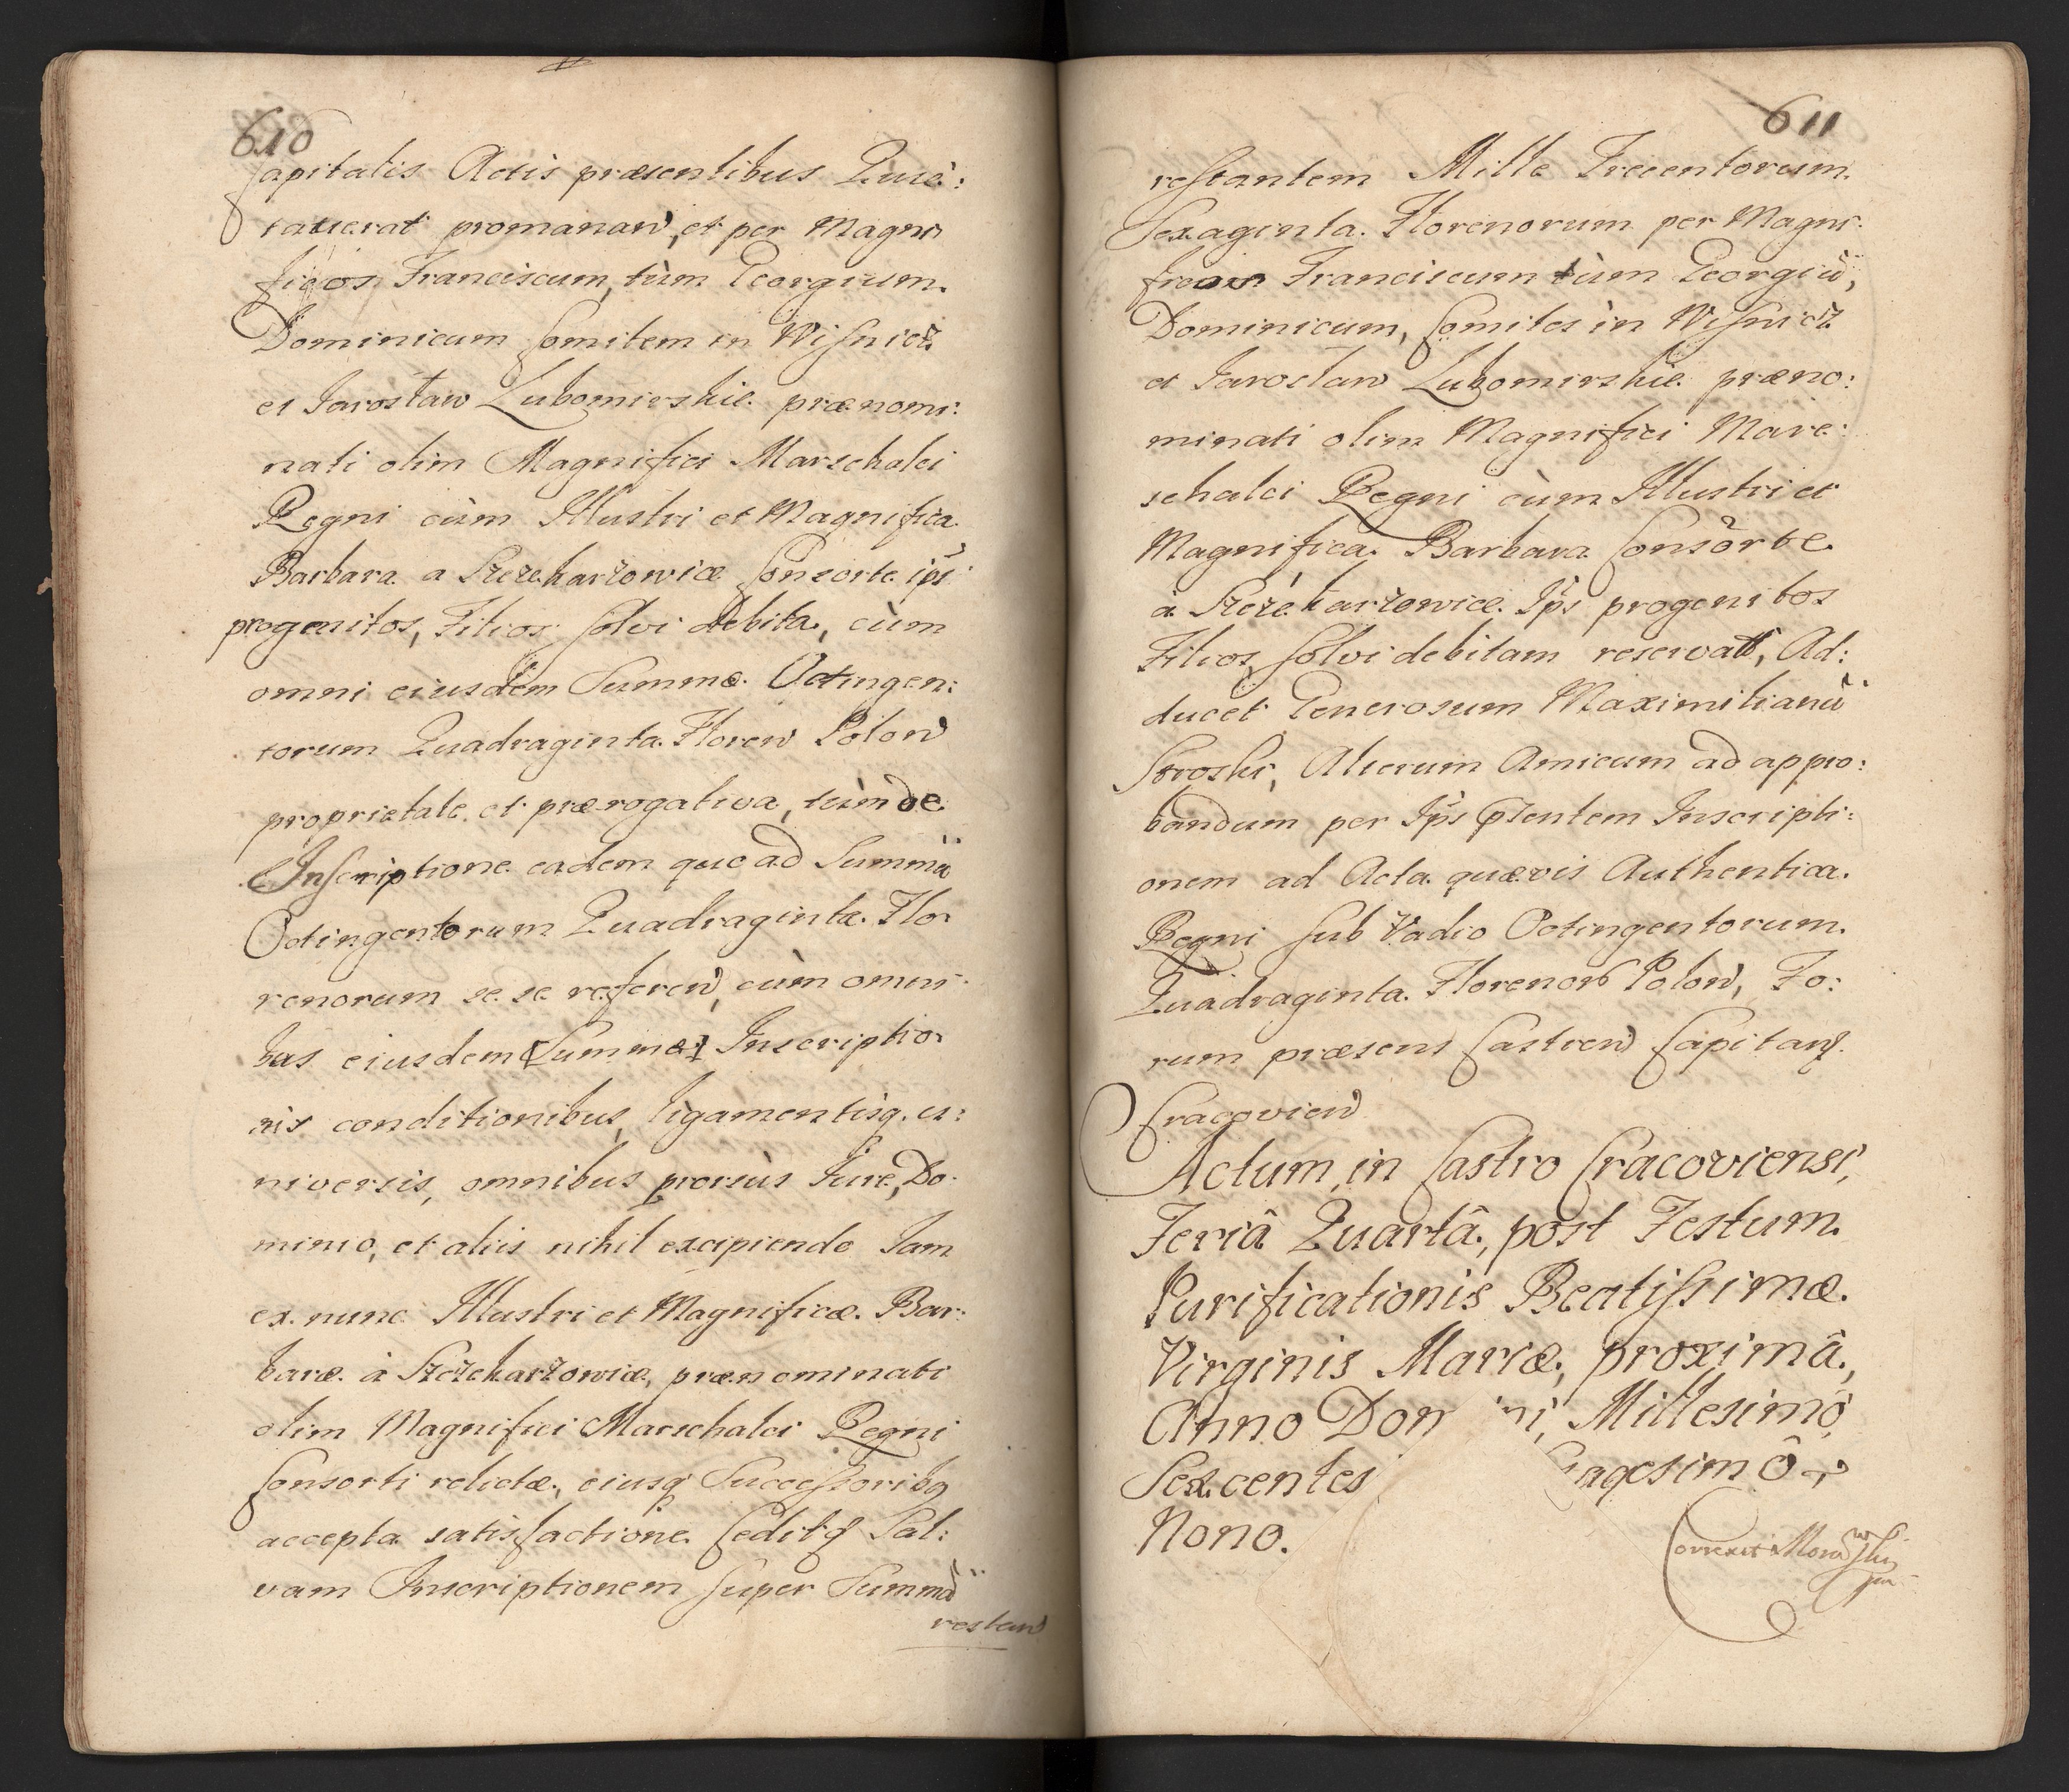 610
Capitalis Actis præsentibus Quie:
taverat promanan, et per Magni
ficos Franciscum, tùm Georgium.
Dominicum Comitem in Wisnicz
et Jarosław Lubomirskie prænomi:
nati olim Magnifici Marschalci
Regni cùm Illustri et Magnifica
Barbara a Szczekarzowice Consorte ips
progenitos, Filios solvi debita, cùm
omni eiusdem Summæ Octingen:
torum Quadraginta Floren Polon
proprietate et prærogativa, tùm de
Inscriptione eadem quo ad Summã
Octingentorum Quadraginta Flo:
renorum se se referen, cùm omni:
bus eiusdem Summæ Inscriptio:
nis conditionibus, ligamentisq. u:
niversis, omnibus prorsùs Jure, Do:
minio, et aliis nihil excipiendo Jam
ex nunc Illustri et Magnificæ Bar:
baræ à Szczekarzowice, prænominati
olim Magnifici Marschalci Regni
Consorti relictæ, eiusq Successoribq
accepta satisfactione Ceditq Sal:
vam Inscriptionem super Summã
restan
611
restantem Mille Trecentorum.
Sexaginta Florenorum per Magni:
ficos Franciscum tùm Georgiũ,
Dominicum, Comites in Wisnicz
et Jarosław Lubomirskie præno:
minati olim Magnifici Mare:
schalci Regni cùm Illustri et
Magnifica Barbara Consorte
à Szczekarzowice Ips progenitos
Filios solvi debitam reservat, Ad:
ducet Generosum Maximilianũ
Soroski, Alterum Amicum ad appro:
bandum per Ips pntentem Inscripti:
onem ad Acta quævis Authentica
Regni sub Vadio Octingentorum
Quadraginta Florenor Polon, Fo:
rum præsens Castren Capitan.
Cracovien
Actum in Castro Cracoviensi,
Feriâ Quartâ, post Festum
Purificationis Beatissimæ
Virginis Mariæ, proximâ,
Anno Dom ni, Millesimô
Sexcentes gagesimô
Nono.
Correxit